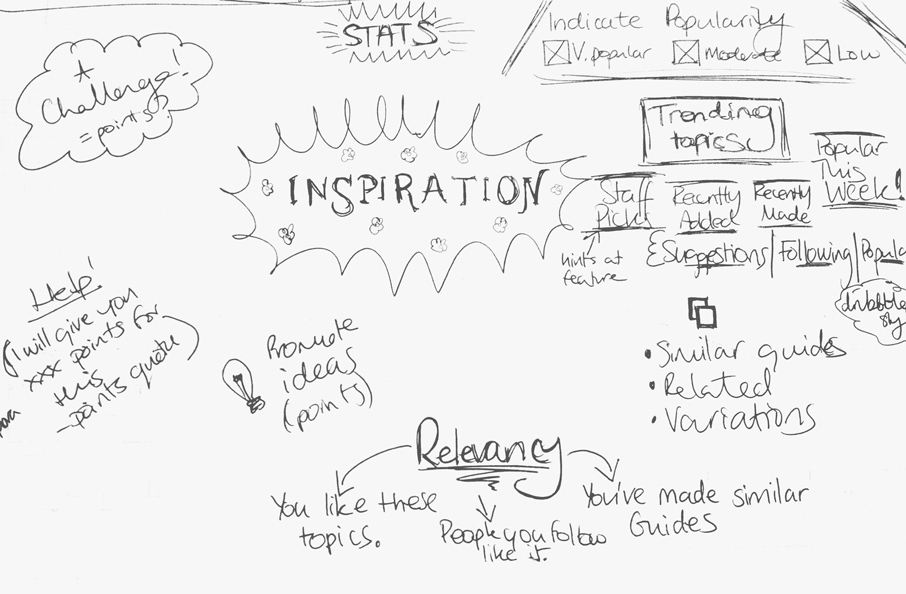 STATS
Indicate Popularity
V. popular
Moderate
Low
Challenge!
= points
INSPIRATION
Trending
topics
Popular
This
Week!
Staff
Picks
Recently
Added
Recently
Made
hints at
feature
Suggestions
Following
Popula
dribbble
Help!
(I will give you
xxx points for
this
- points quote)
Promote
ideas
(points)
• Similar guides
• Related
• Variations
Relevancy
You like these
topics.
People you follow
like it.
You've made similar
Guides